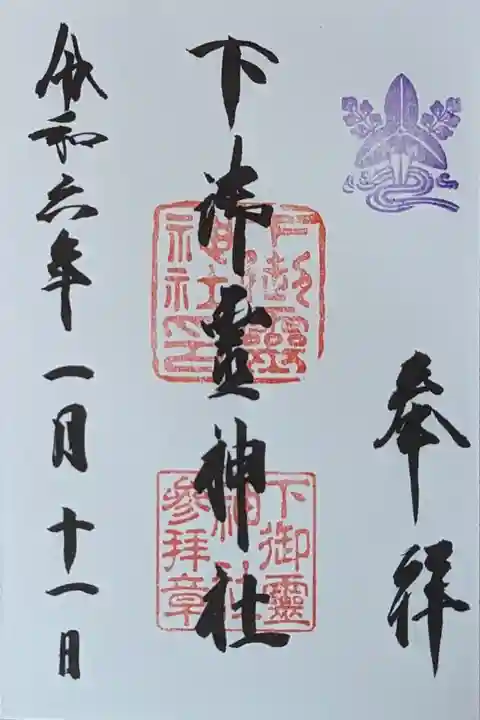 奉拝
下御靈神社
下御靈神社印
下御靈神社参拝章
令和六年一月十一日